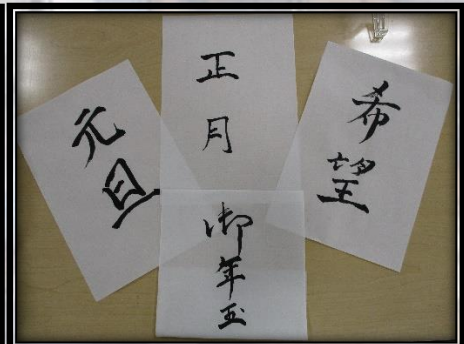 元旦
正月
希望
御年玉